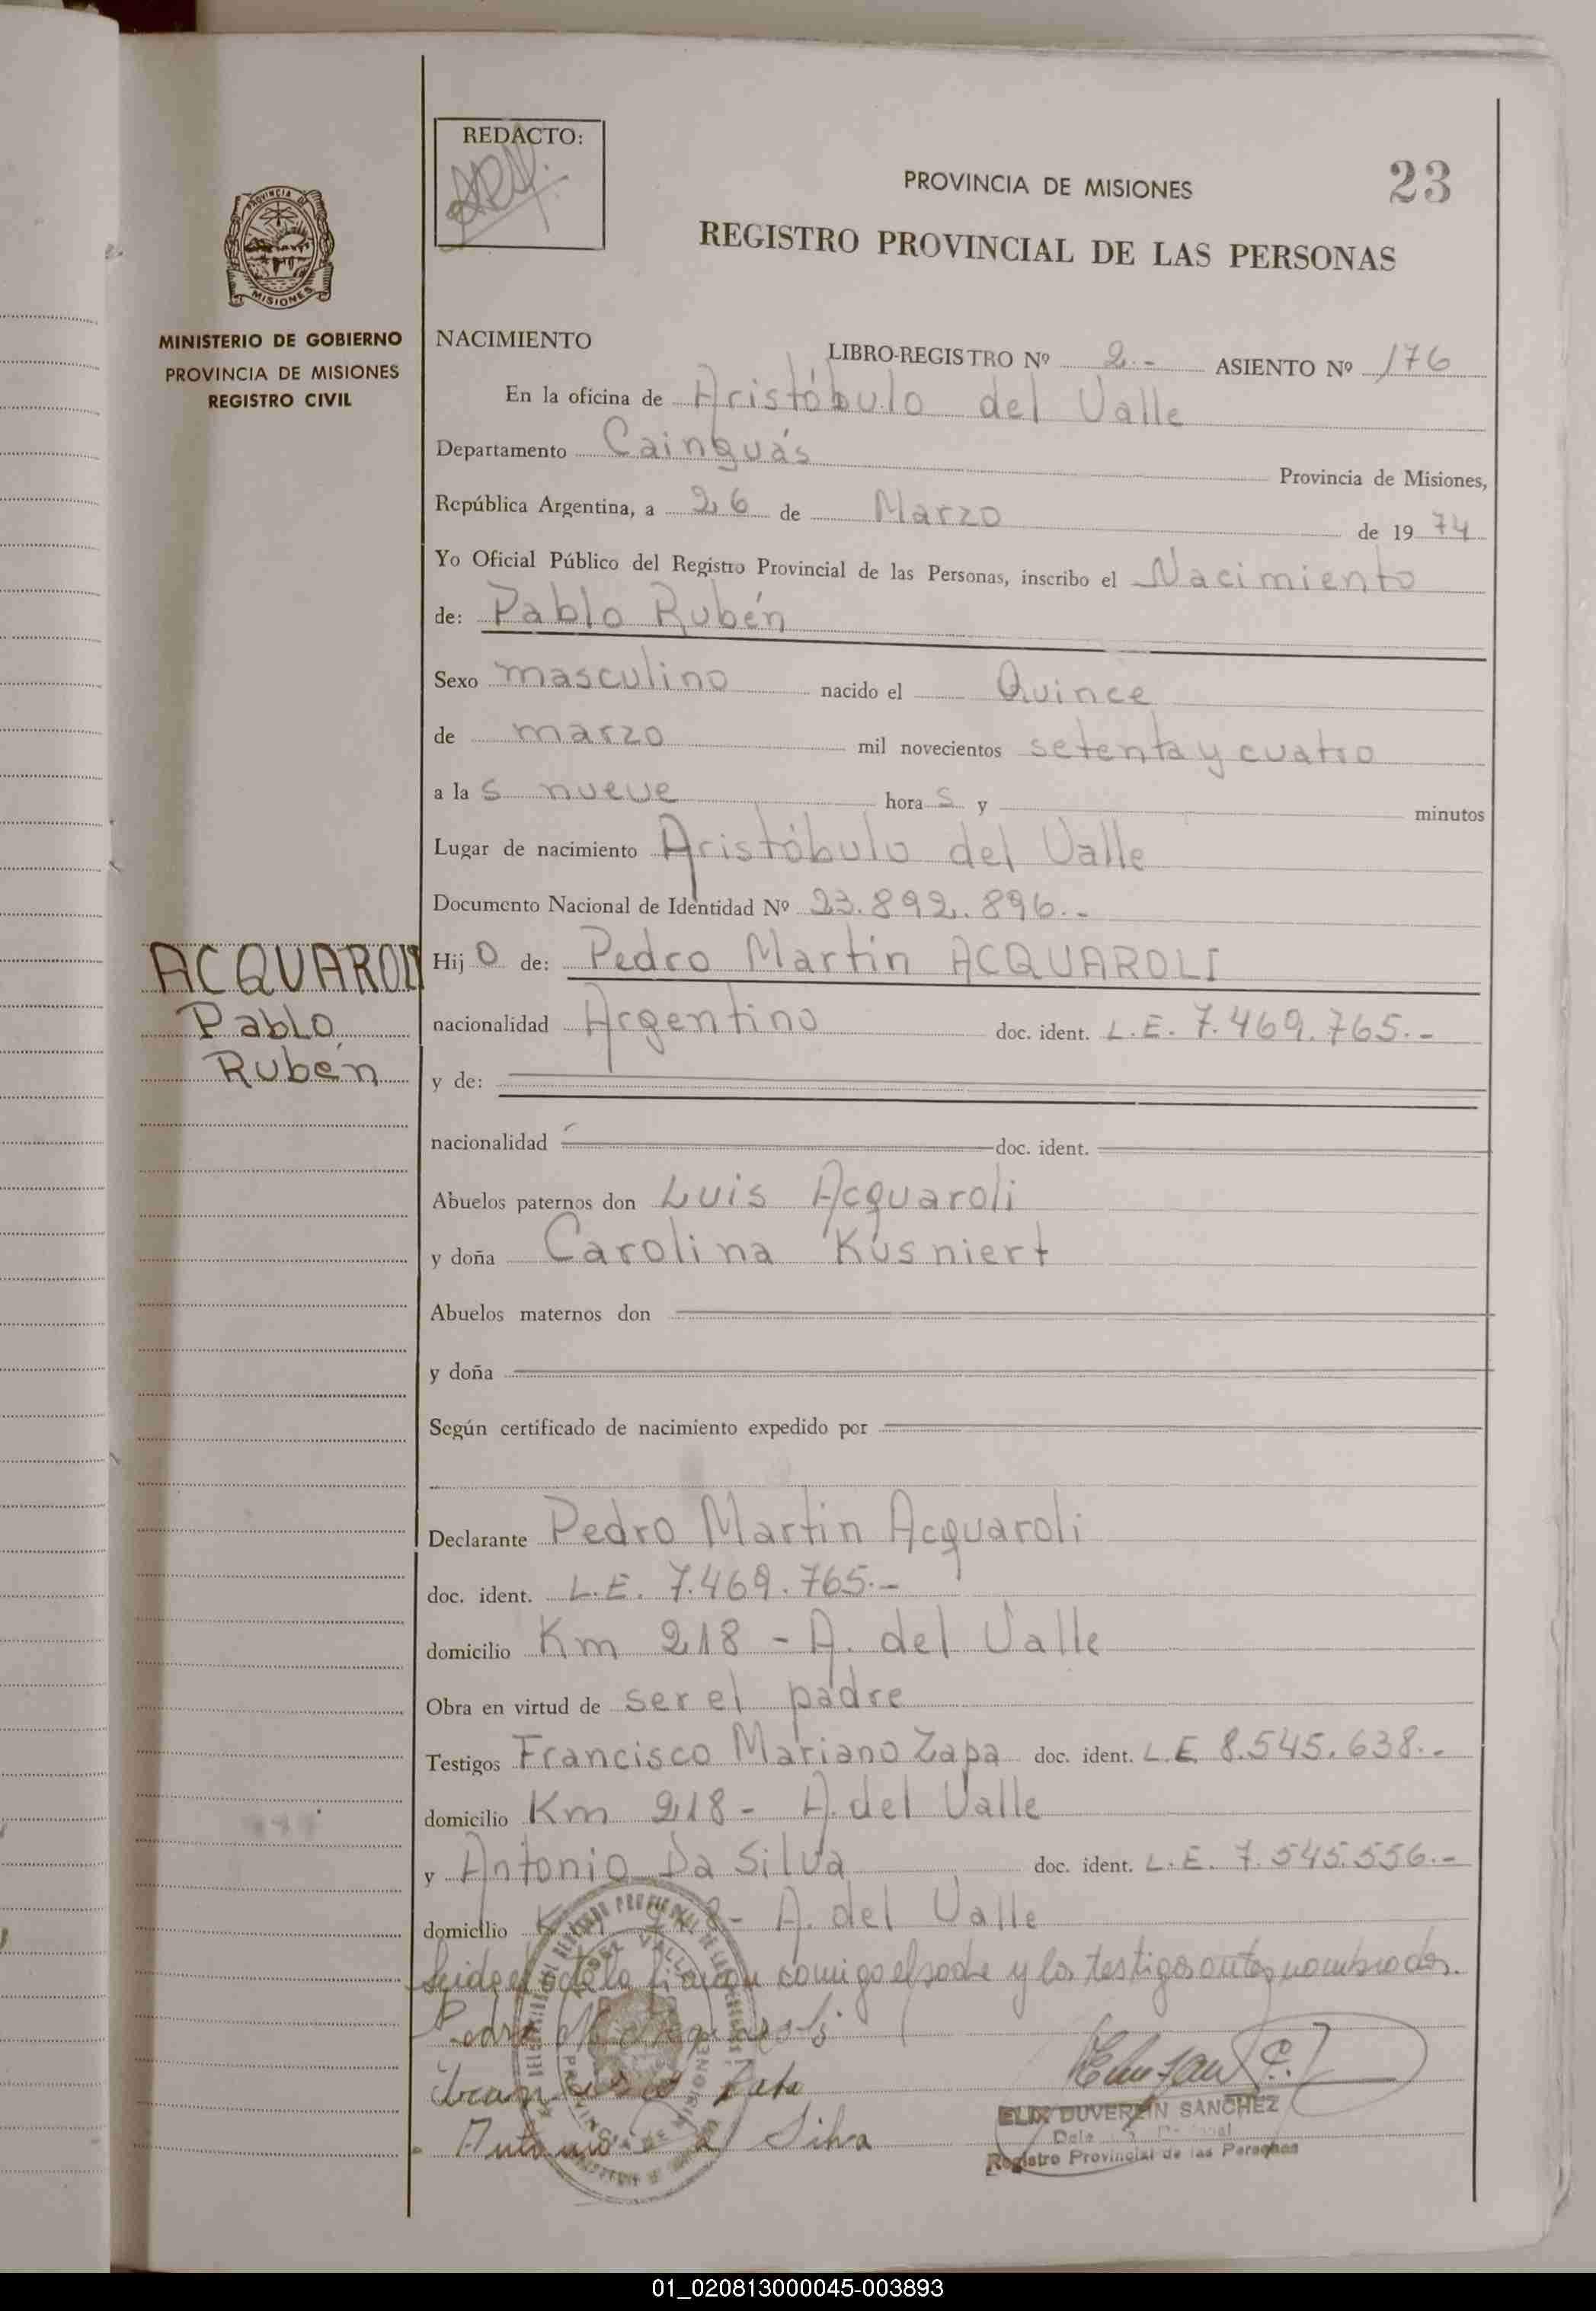 REDACTO:
PROVINCIA DE MISIONES
23
REGISTRO PROVINCIAL DE LAS PERSONAS
PROVINCIA DE
MISIONES
MINISTERIO DE GOBIERNO
PROVINCIA DE MISIONES
REGISTRO CIVIL
NACIMIENTO
LIBRO-REGISTRO Nº 2.- ASIENTO Nº 176
En la oficina de Aristóbulo del Valle
Departamento Cainguás Provincia de Misiones,
República Argentina, a 26 de Marzo de 1974
Yo Oficial Público del Registro Provincial de las Personas, inscribo el Nacimiento
de: Pablo Rubén
Sexo masculino nacido el Quince
de marzo mil novecientos setenta y cuatro
a la s nueve hora s y minutos
Lugar de nacimiento Aristóbulo del Valle
Documento Nacional de Identidad Nº 23.892.896.-
ACQUAROLI
Pablo
Rubén
Hij o de: Pedro Martin ACQUAROLI
nacionalidad Argentino doc. ident. L.E. 7.469.765.-
y de:
nacionalidad doc. ident.
Abuelos paternos don Luis Acquaroli
y doña Carolina Kusniert
Abuelos maternos don
y doña
Según certificado de nacimiento expedido por
Declarante Pedro Martin Acquaroli
doc. ident. L.E. 7.469.765.-
domicilio Km 218 - A. del Valle
Obra en virtud de ser el padre
Testigos Francisco Mariano Zapa doc. ident. L.E. 8.545.638.-
domicilio Km 218 - A. del Valle
y Antonio Da Silva doc. ident. L.E. 7.545.556.-
domicilio A. del Valle
Leida el acta la firman comigo el padre y los testigos antes nombrados.
Antonio Silva
ELIX DUVERLIN SANCHEZ
Registro Provincial de las Personas
01_020813000045-003893